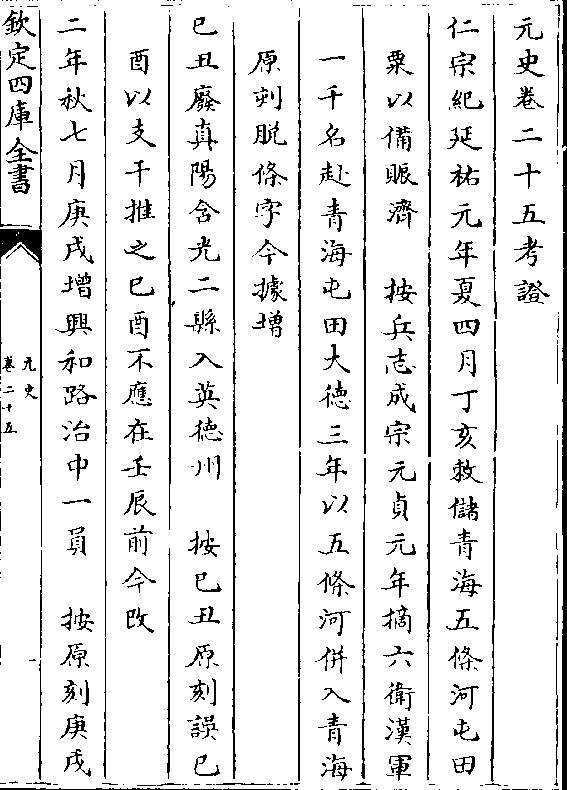 元史卷二十五考證
仁宗紀延祐元年夏四月丁亥敕儲青海五條河屯田
粟以備賑濟　按兵志成宗元貞元年摘六衛漢軍
一千名赴青海屯田大德三年以五條河併入青海
原刻脫條字今據增
己丑廢真陽含光二縣入英德州　按己丑原刻誤己
酉以支干推之己酉不應在壬辰前今改
二年秋七月庚戌增興和路治中一員　按原刻庚戌
欽定四庫全書
元史
卷二十五
一